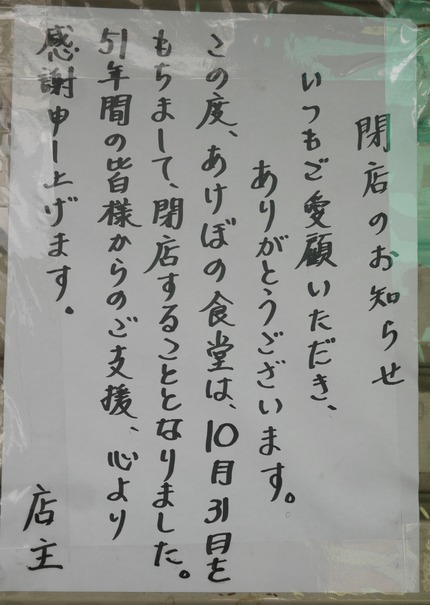 閉店のお知らせ
いつもご愛顧いただき、
ありがとうございます。
この度、あけぼの食堂は、10月31日を
もちまして、閉店することとなりました。
51年間の皆様からのご支援、心より
感謝申し上げます。
店主